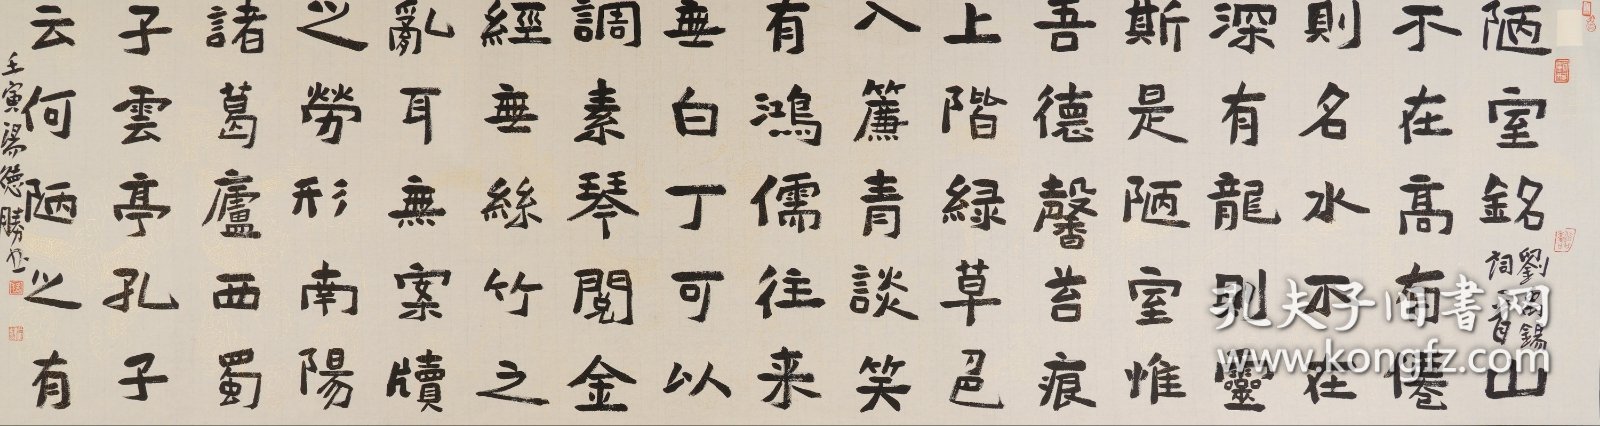 陋室銘
劉禹錫
詞一首
山
不在高有僊
則名水不在
深有龍則靈
斯是陋室惟
吾德馨苔痕
上階緑草色
入簾青談笑
有鴻儒往来
無白丁可以
調素琴閱金
經無絲竹之
亂耳無案牘
之勞形南陽
諸葛廬西蜀
子雲亭孔子
云何陋之有
壬寅湯德勝書
孔夫子旧书网
www.kongfz.com